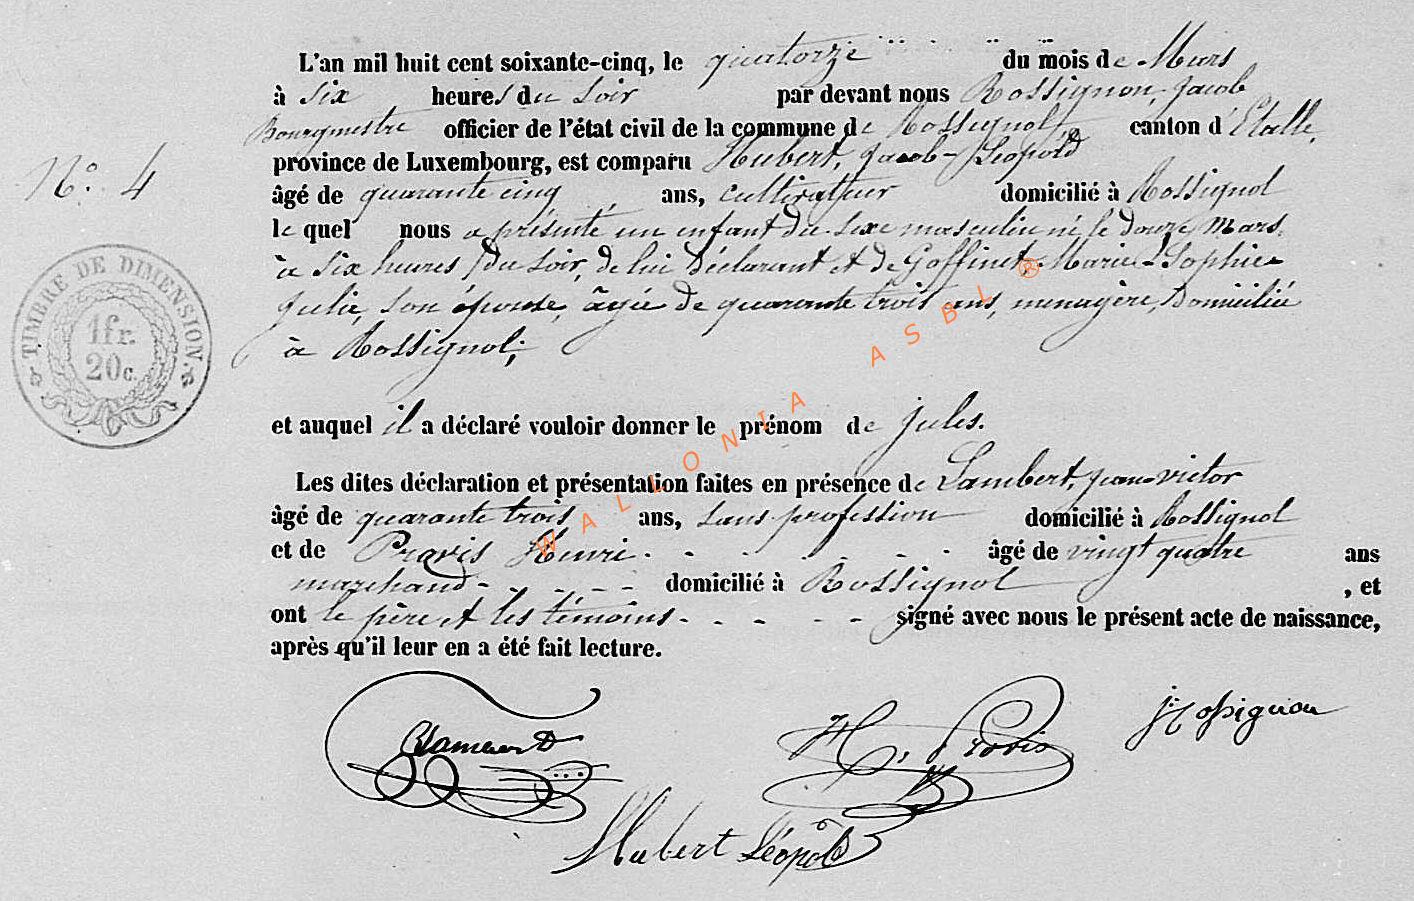 L'an mil huit cent soixante-cinq, le quatorze du mois de Mars
à six heures du soir par devant nous Rossignon, Jacob
Bourgmestre officier de l'état civil de la commune de Rossignol, canton d'Etalle,
province de Luxembourg, est comparu Hubert, Jacob-Léopold
N° 4
âgé de quarante cinq ans, cultivateur domicilié à Rossignol
le quel nous a présenté un enfant du sexe masculin né le douze Mars
à six heures du soir, de lui déclarant et de Goffinet, Marie-Sophie-
Julie, son épouse, âgée de quarante trois ans, ménagère, domiciliée
à Rossignol;
TIMBRE DE DIMENSION.
1 fr.
20 c.
et auquel il a déclaré vouloir donner le prénom de Jules.
Les dites déclaration et présentation faites en présence de Lambert, Jean-victor
âgé de quarante trois ans, sans profession domicilié à Rossignol
et de Provis Henri - - - - - - - âgé de vingt quatre ans
marchand - - - - - domicilié à Rossignol , et
ont le père et les témoins - - - - - signé avec nous le présent acte de naissance,
après qu'il leur en a été fait lecture.
Lambert H. Provis J. Rossignon
Hubert Léopold
WALLONIA ASBL ®